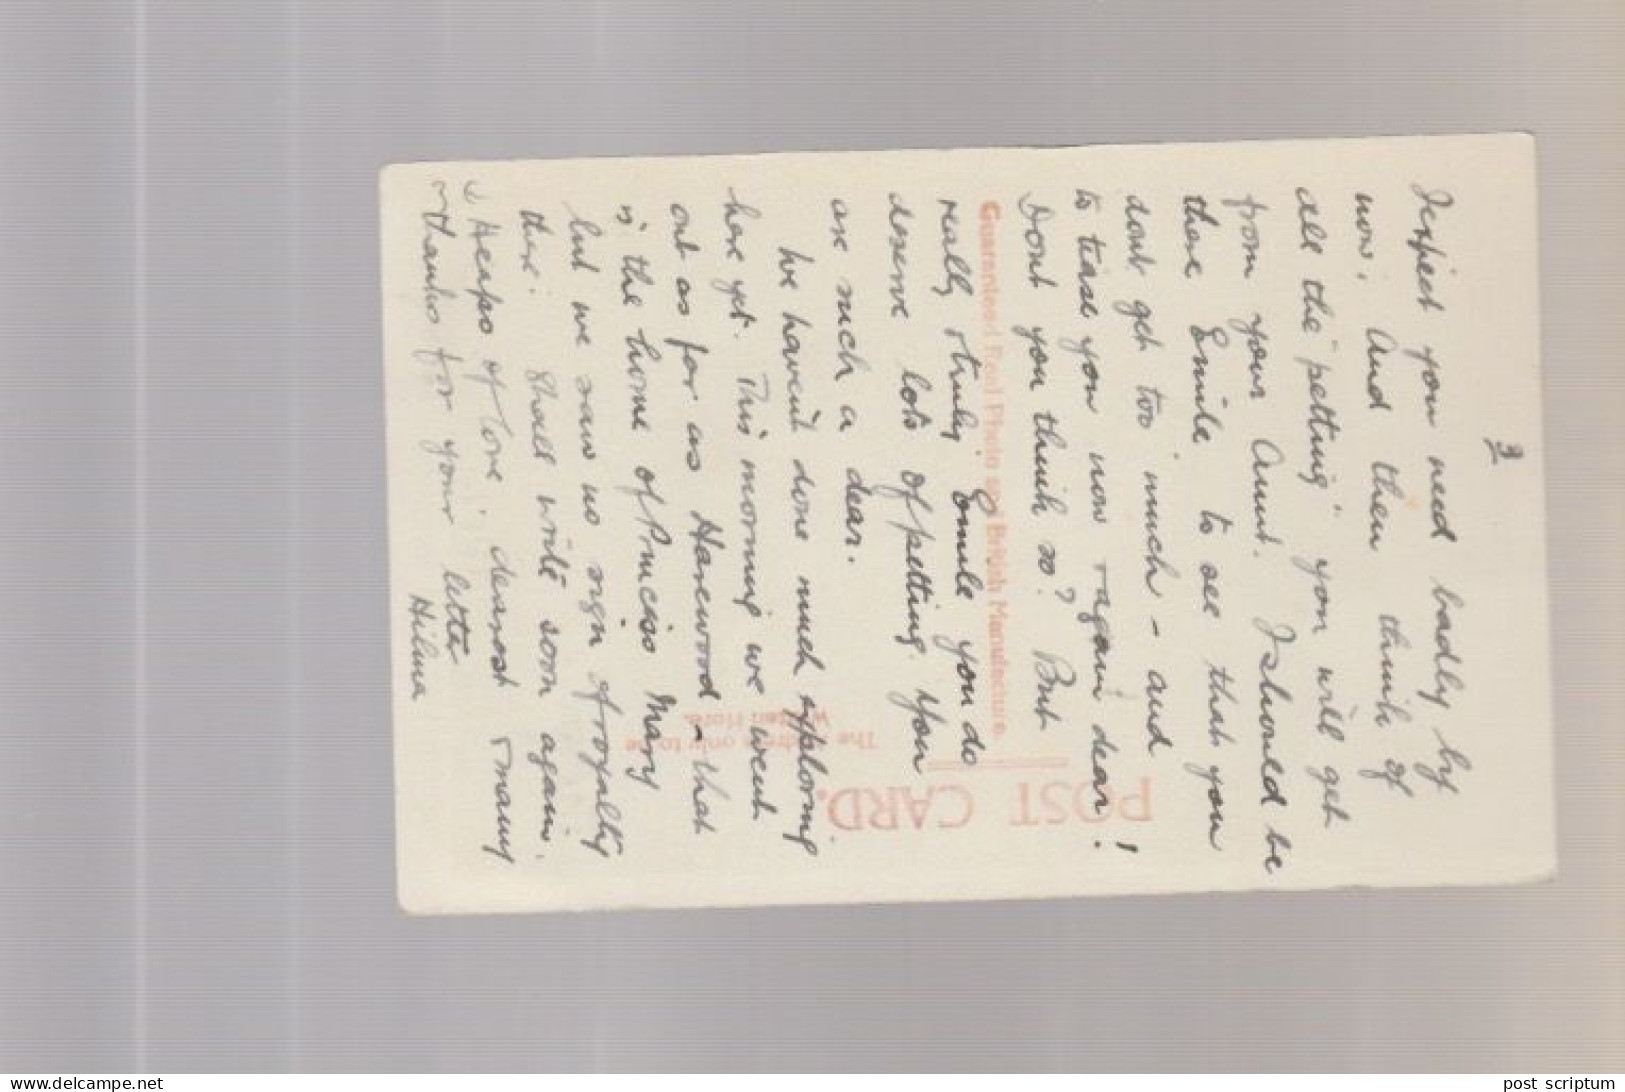 3
I expect you need badly by
now. And then think of
all the "petting" you will get
from your Aunt. I should be
there Emile to see that you
dont get too much - and
to tease you now & again dear!
Dont you think so? But
really & truly Emile you do
deserve lots of petting. You
are such a dear.
We haven't done much exploring
here yet. This morning we went
out as far as Harewood - that
is the home of Princess Mary
but we saw no sign of royalty
there. Shall write soon again.
Heaps of love, dearest & many
thanks for your letter
Hilma
Guaranteed Real Photo and British Manufacture.
POST CARD.
The Address only to be
Written Here.
www.delcampe.net
post scriptum